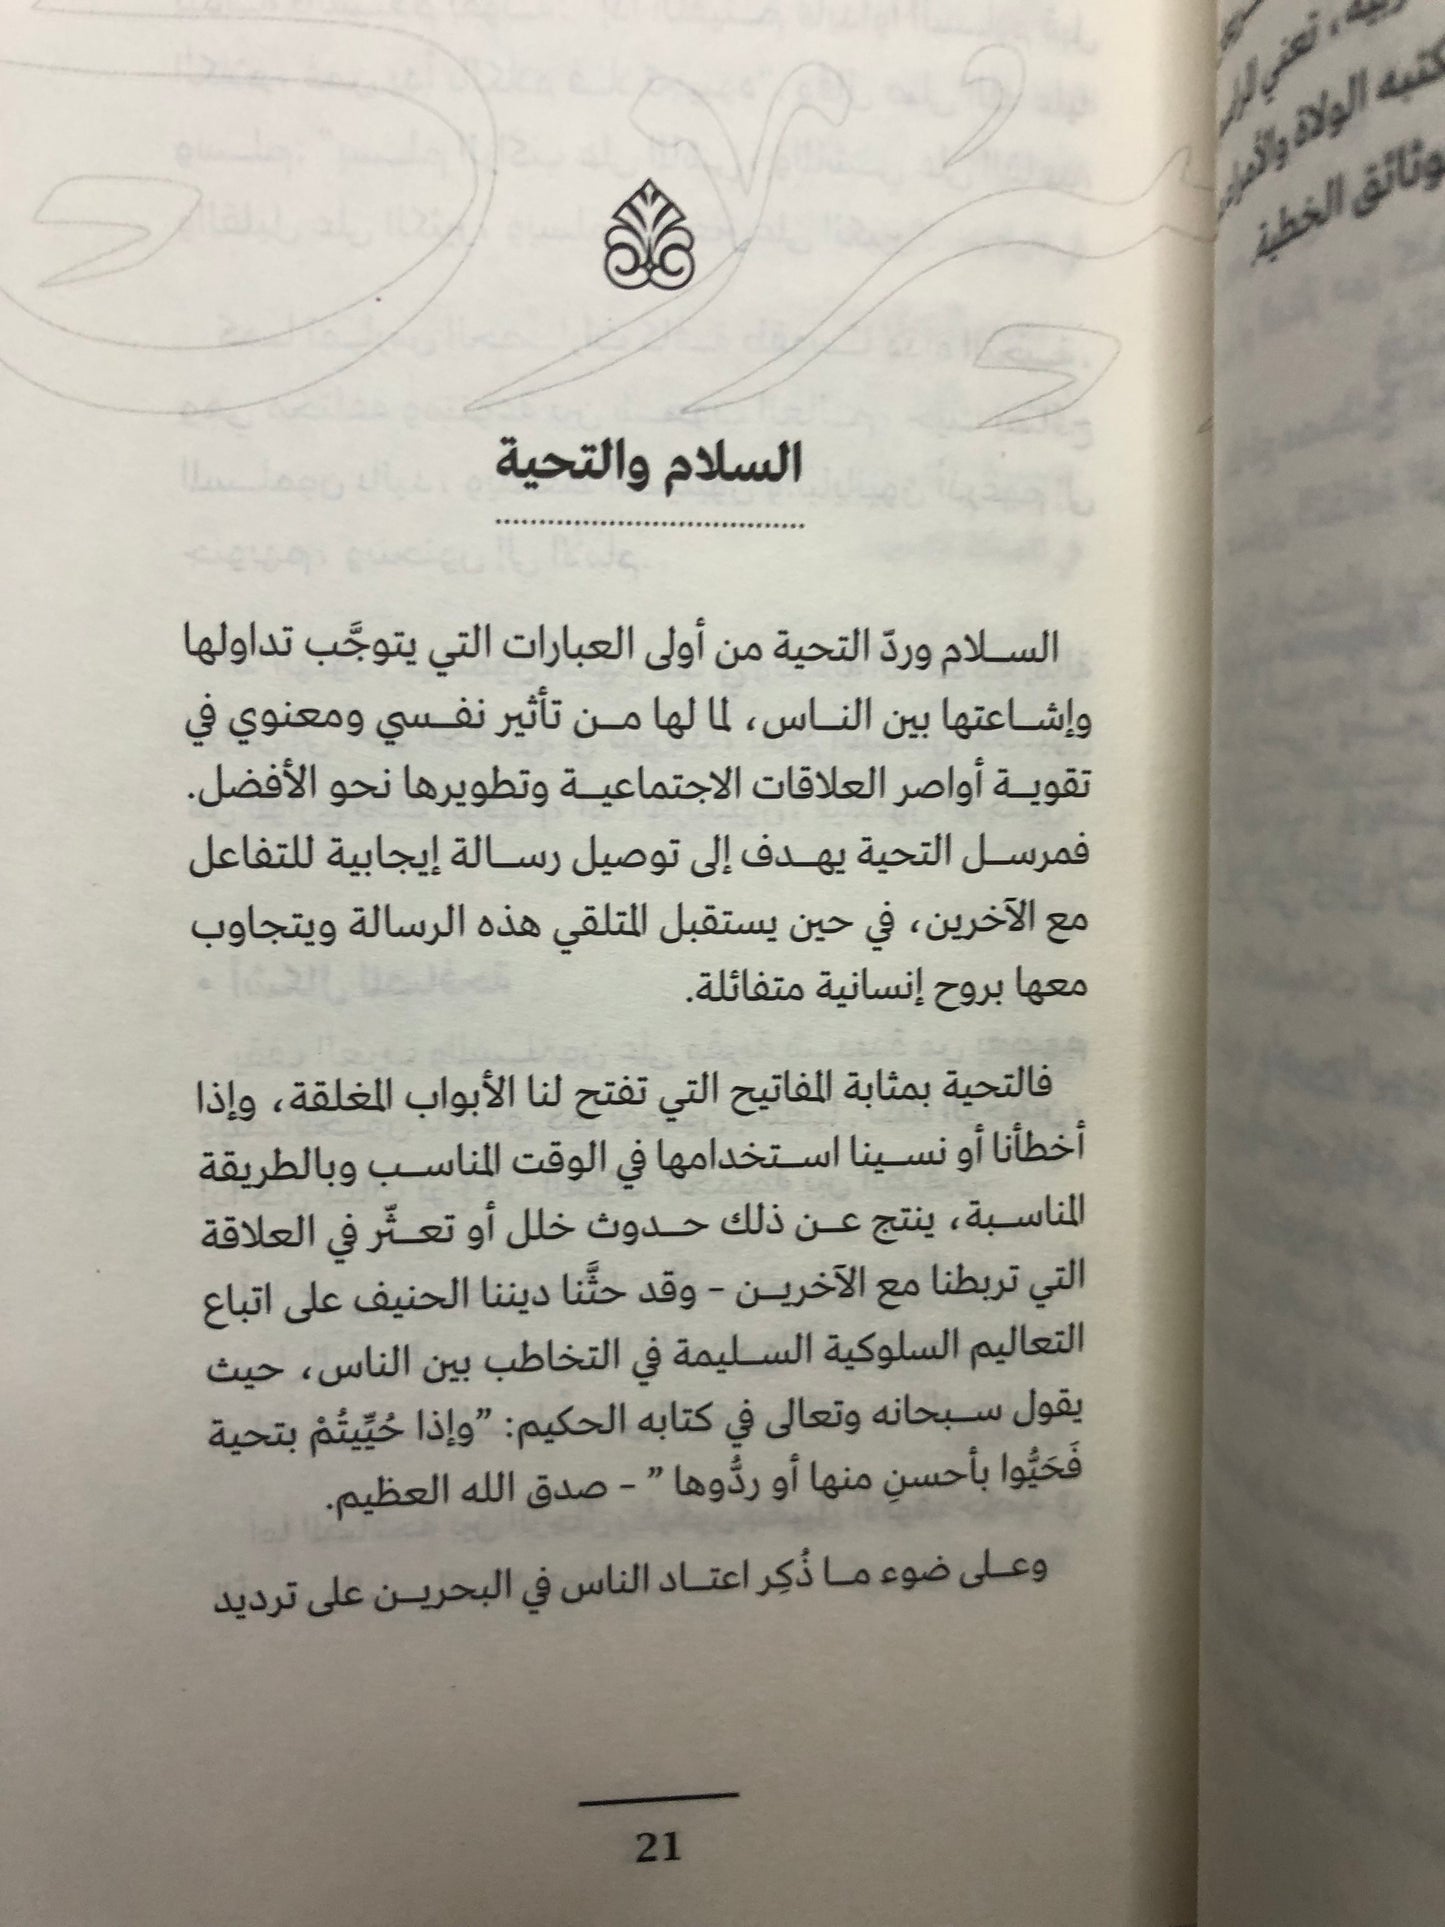 السلام والتحية
السلام وردّ التحية من أولى العبارات التي يتوجَّب تداولها
وإشاعتها بين الناس، لما لها من تأثير نفسي ومعنوي في
تقوية أواصر العلاقات الاجتماعية وتطويرها نحو الأفضل.
فمرسل التحية يهدف إلى توصيل رسالة إيجابية للتفاعل
مع الآخرين، في حين يستقبل المتلقي هذه الرسالة ويتجاوب
معها بروح إنسانية متفائلة.
فالتحية بمثابة المفاتيح التي تفتح لنا الأبواب المغلقة، وإذا
أخطأنا أو نسينا استخدامها في الوقت المناسب وبالطريقة
المناسبة، ينتج عن ذلك حدوث خلل أو تعثّر في العلاقة
التي تربطنا مع الآخرين - وقد حثَّنا ديننا الحنيف على اتباع
التعاليم السلوكية السليمة في التخاطب بين الناس، حيث
يقول سبحانه وتعالى في كتابه الحكيم: ”وإذا حُيِّيتُمْ بتحية
فَحَيُّوا بأحسنِ منها أو ردُّوها ” - صدق الله العظيم.
وعلى ضوء ما ذُكِر اعتاد الناس في البحرين على ترديد
21
تعني
كتبه الولاة
الخطية